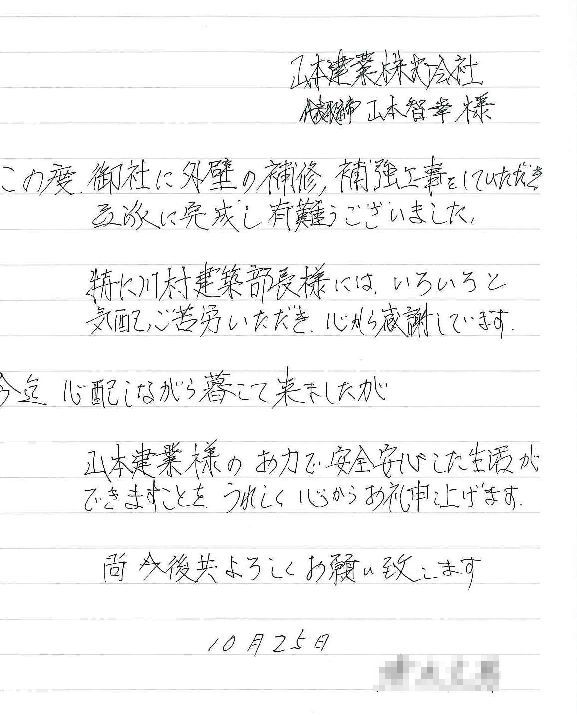 山本建業株式会社
代表取締 山本智幸様
この度 御社に外壁の補修、補強工事をしていただき
立派に完成し有難うございました、
特に川村建築部長様には、いろいろと
気配、ご苦労いただき、心から感謝しています。
今迄 心配しながら暮して来ましたが
山本建業様のお力で安全安心した生活が
できますことを うれしく心からお礼申上げます。
尚 今後共よろしくお願い致します
10月25日